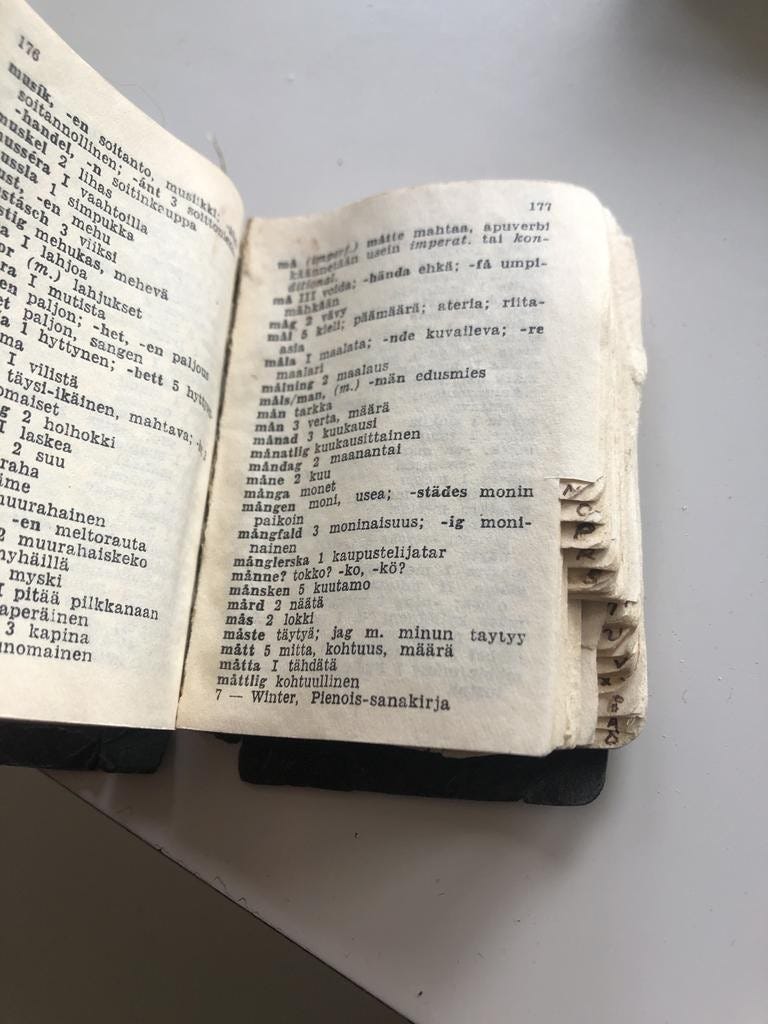 176
musik, -en soitanto, musiikki;
soitannollinen; -ánt 3
-handel, -n soitinkauppa
muskel 2 lihas
musséra I vaahtoilla
mussla 1 simpukka
-en mehu
3 viiksi
mehukas, mehevä
I lahjoa
(m.) lahjukset
I mutista
paljon; -het, -en paljous
paljon, sangen
1 hyttynen; -bett 5
I vilistä
täysi-ikäinen, mahtava;
2 holhokki
I laskea
2 suu
muurahainen
-en meltorauta
2 muurahaiskeko
myski
pitää pilkkanaan
3 kapina
177
må (imperf.) måtte mahtaa, apuverbi
käännetään usein imperat. tai kon-
ditional.
må III voida; -hända ehkä; -få umpi-
mähkään
måg 2 vävy
mål 5 kieli; päämäärä; ateria; riita-
asia
måla I maalata; -nde kuvaileva; -re
maalari
målning 2 maalaus
måls/man, (m.) -män edusmies
mån tarkka
mån 3 verta, määrä
månad 3 kuukausi
månatlig kuukausittainen
måndag 2 maanantai
måne 2 kuu
många monet
mången moni, usea; -städes monin
paikoin
mångfald 3 moninaisuus; -ig moni-
nainen
månglerska 1 kaupustelijatar
månne? tokko? -ko, -kö?
månsken 5 kuutamo
mård 2 näätä
mås 2 lokki
måste täytyä; jag m. minun taytyy
mått 5 mitta, kohtuus, määrä
måtta I tähdätä
måttlig kohtuullinen
7 — Winter, Pienois-sanakirja
N
O
P
R
S